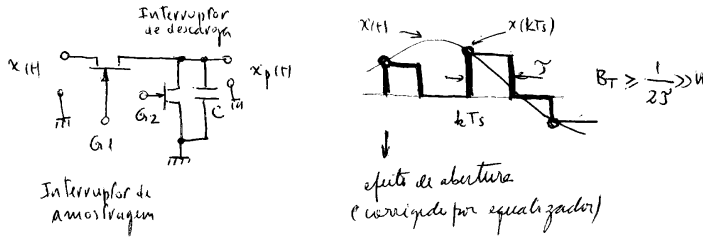 Interruptor
de descarga
x(t)
G1
G2
C
xp(t)
Interruptor de
amostragem
x(t)
x(kTs)
τ
kTs
B_T ≥ 1/2τ >> W
efeito de abertura
(corrigido por equalizador)